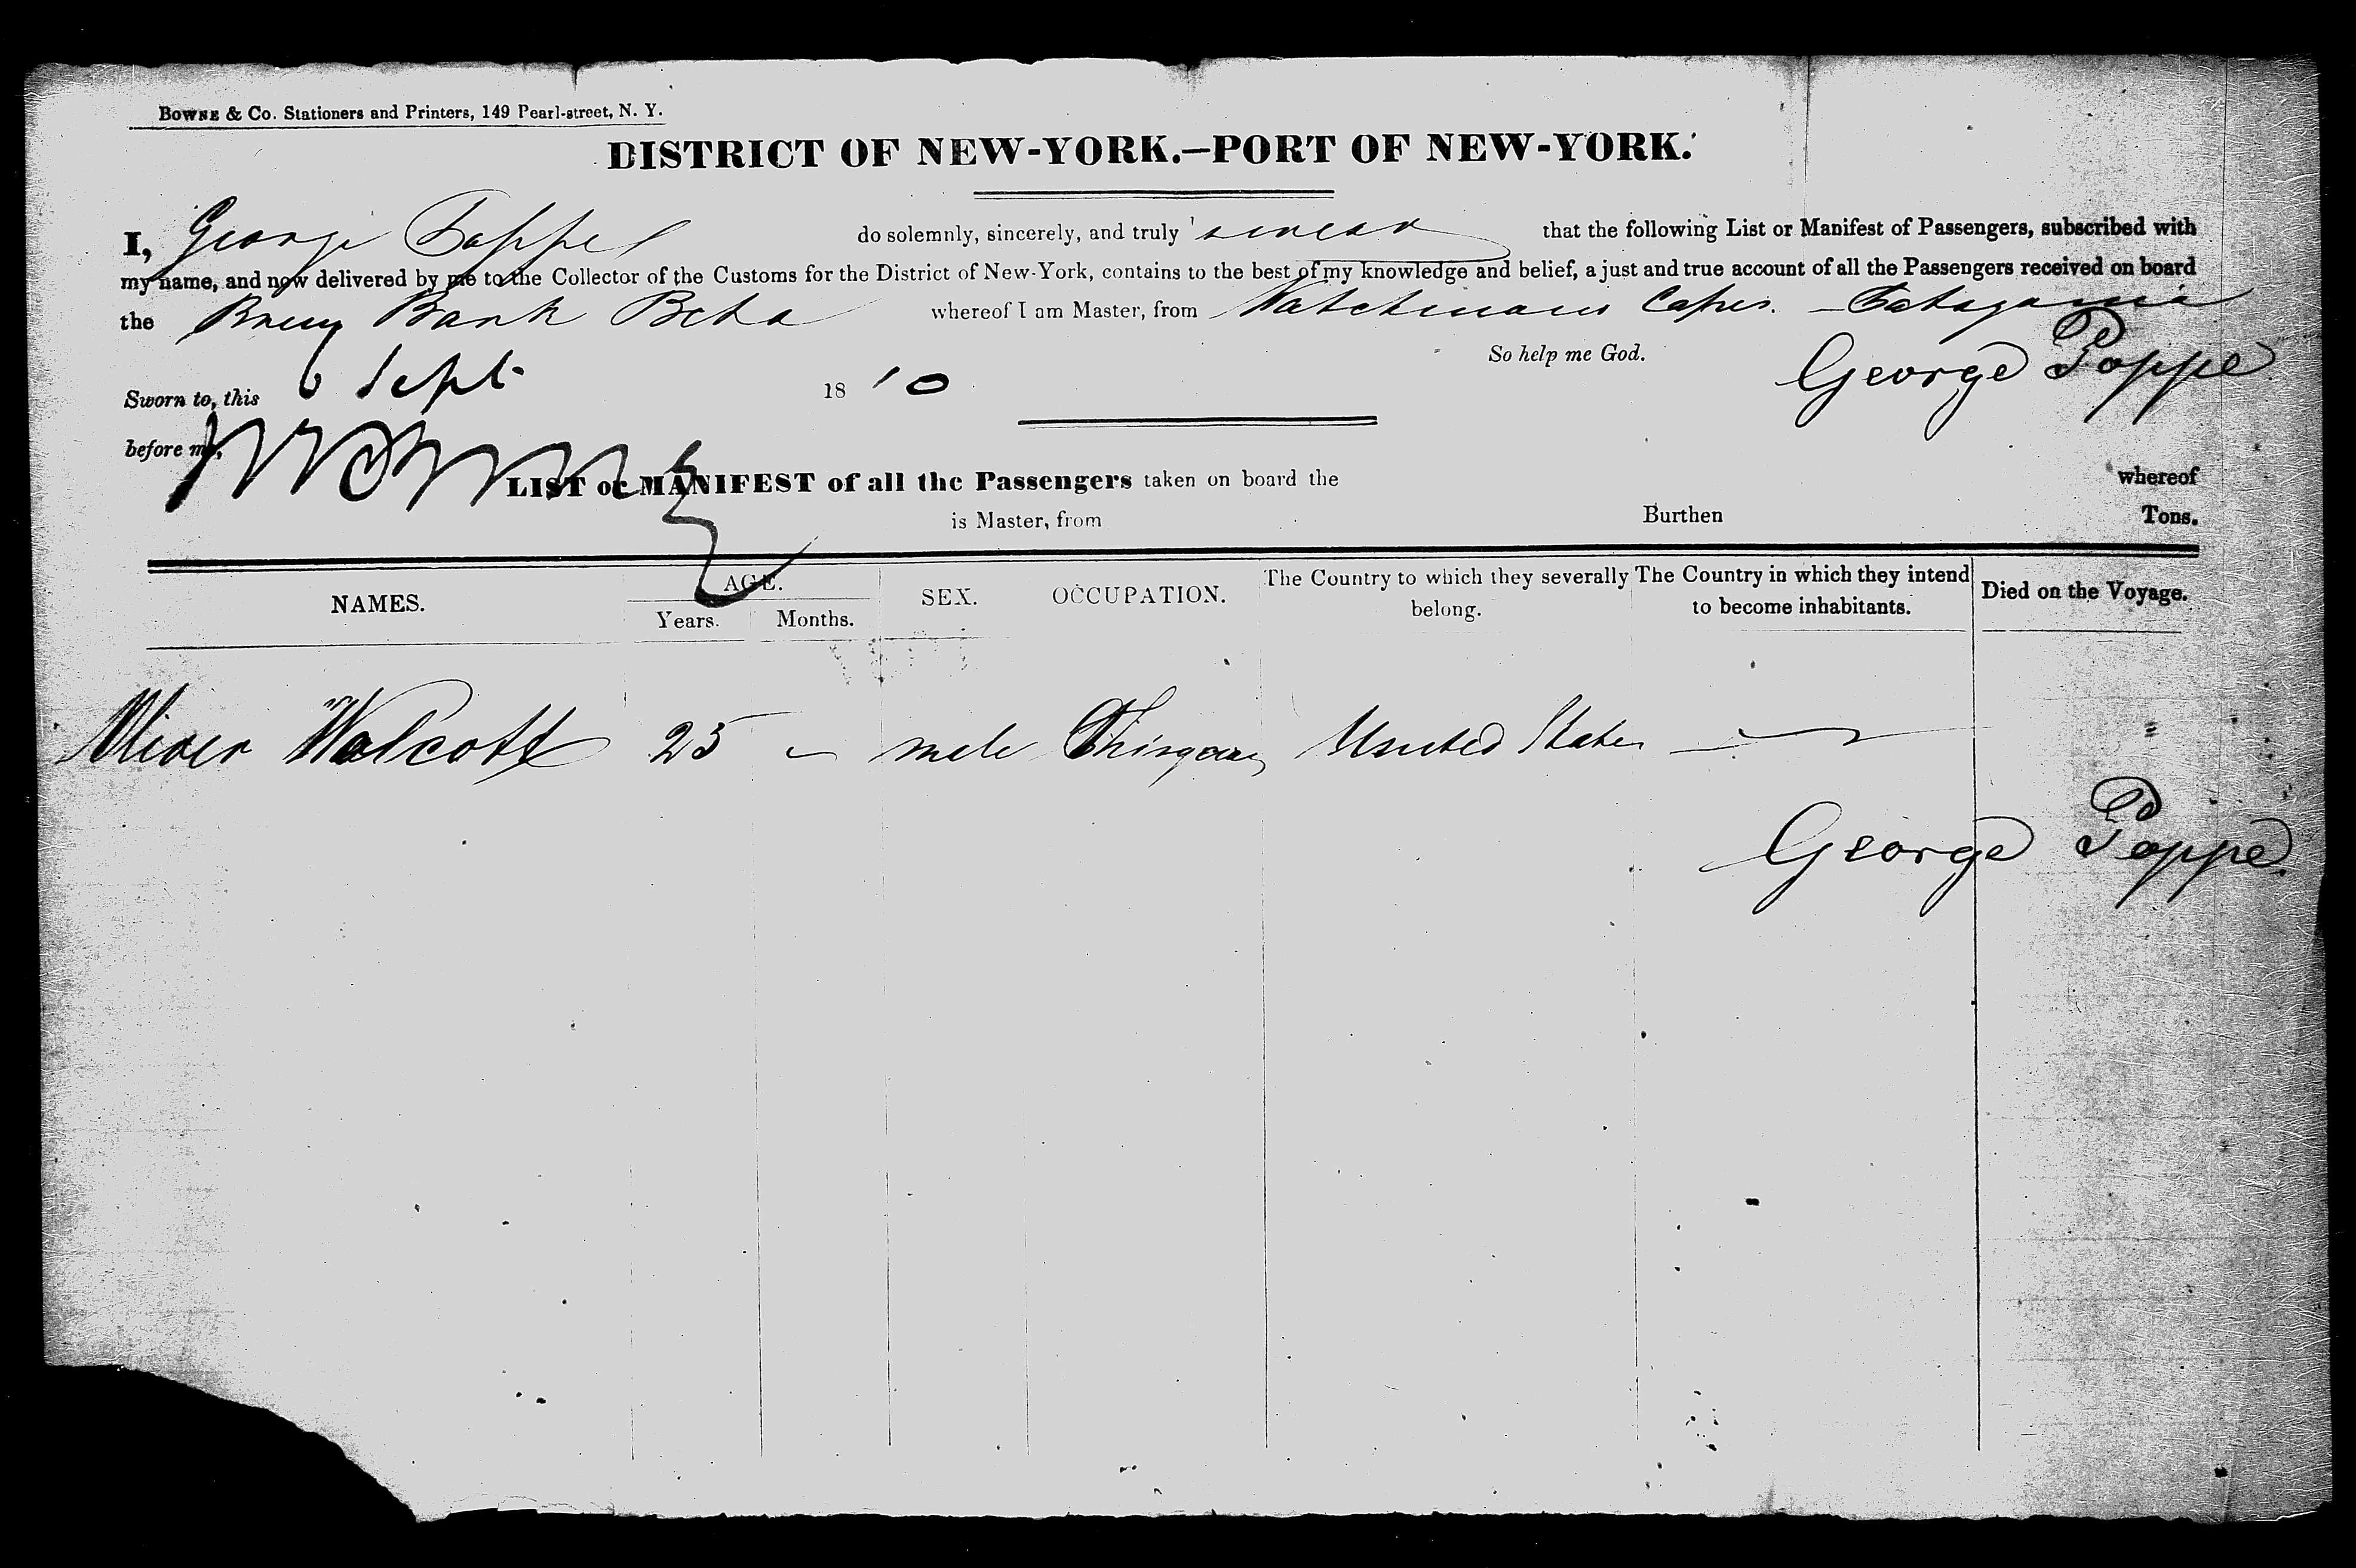 BOWNE & Co. Stationers and Printers, 149 Pearl-street, N. Y.
DISTRICT OF NEW-YORK.—PORT OF NEW-YORK.
I, George Poppe do solemnly, sincerely, and truly swear that the following List or Manifest of Passengers, subscribed with
my name, and now delivered by me to the Collector of the Customs for the District of New-York, contains to the best of my knowledge and belief, a just and true account of all the Passengers received on board
the Bark Beta whereof I am Master, from Watchmans Cape. Patagonia
So help me God. George Poppe
Sworn to, this 6 Sept 18
before me,
LIST or MANIFEST of all the Passengers taken on board the whereof
is Master, from Burthen Tons.
NAMES. AGE. Years. Months. SEX. OCCUPATION. The Country to which they severally belong. The Country in which they intend to become inhabitants. Died on the Voyage.
Oliver Wolcott 25 male United States
George Poppe